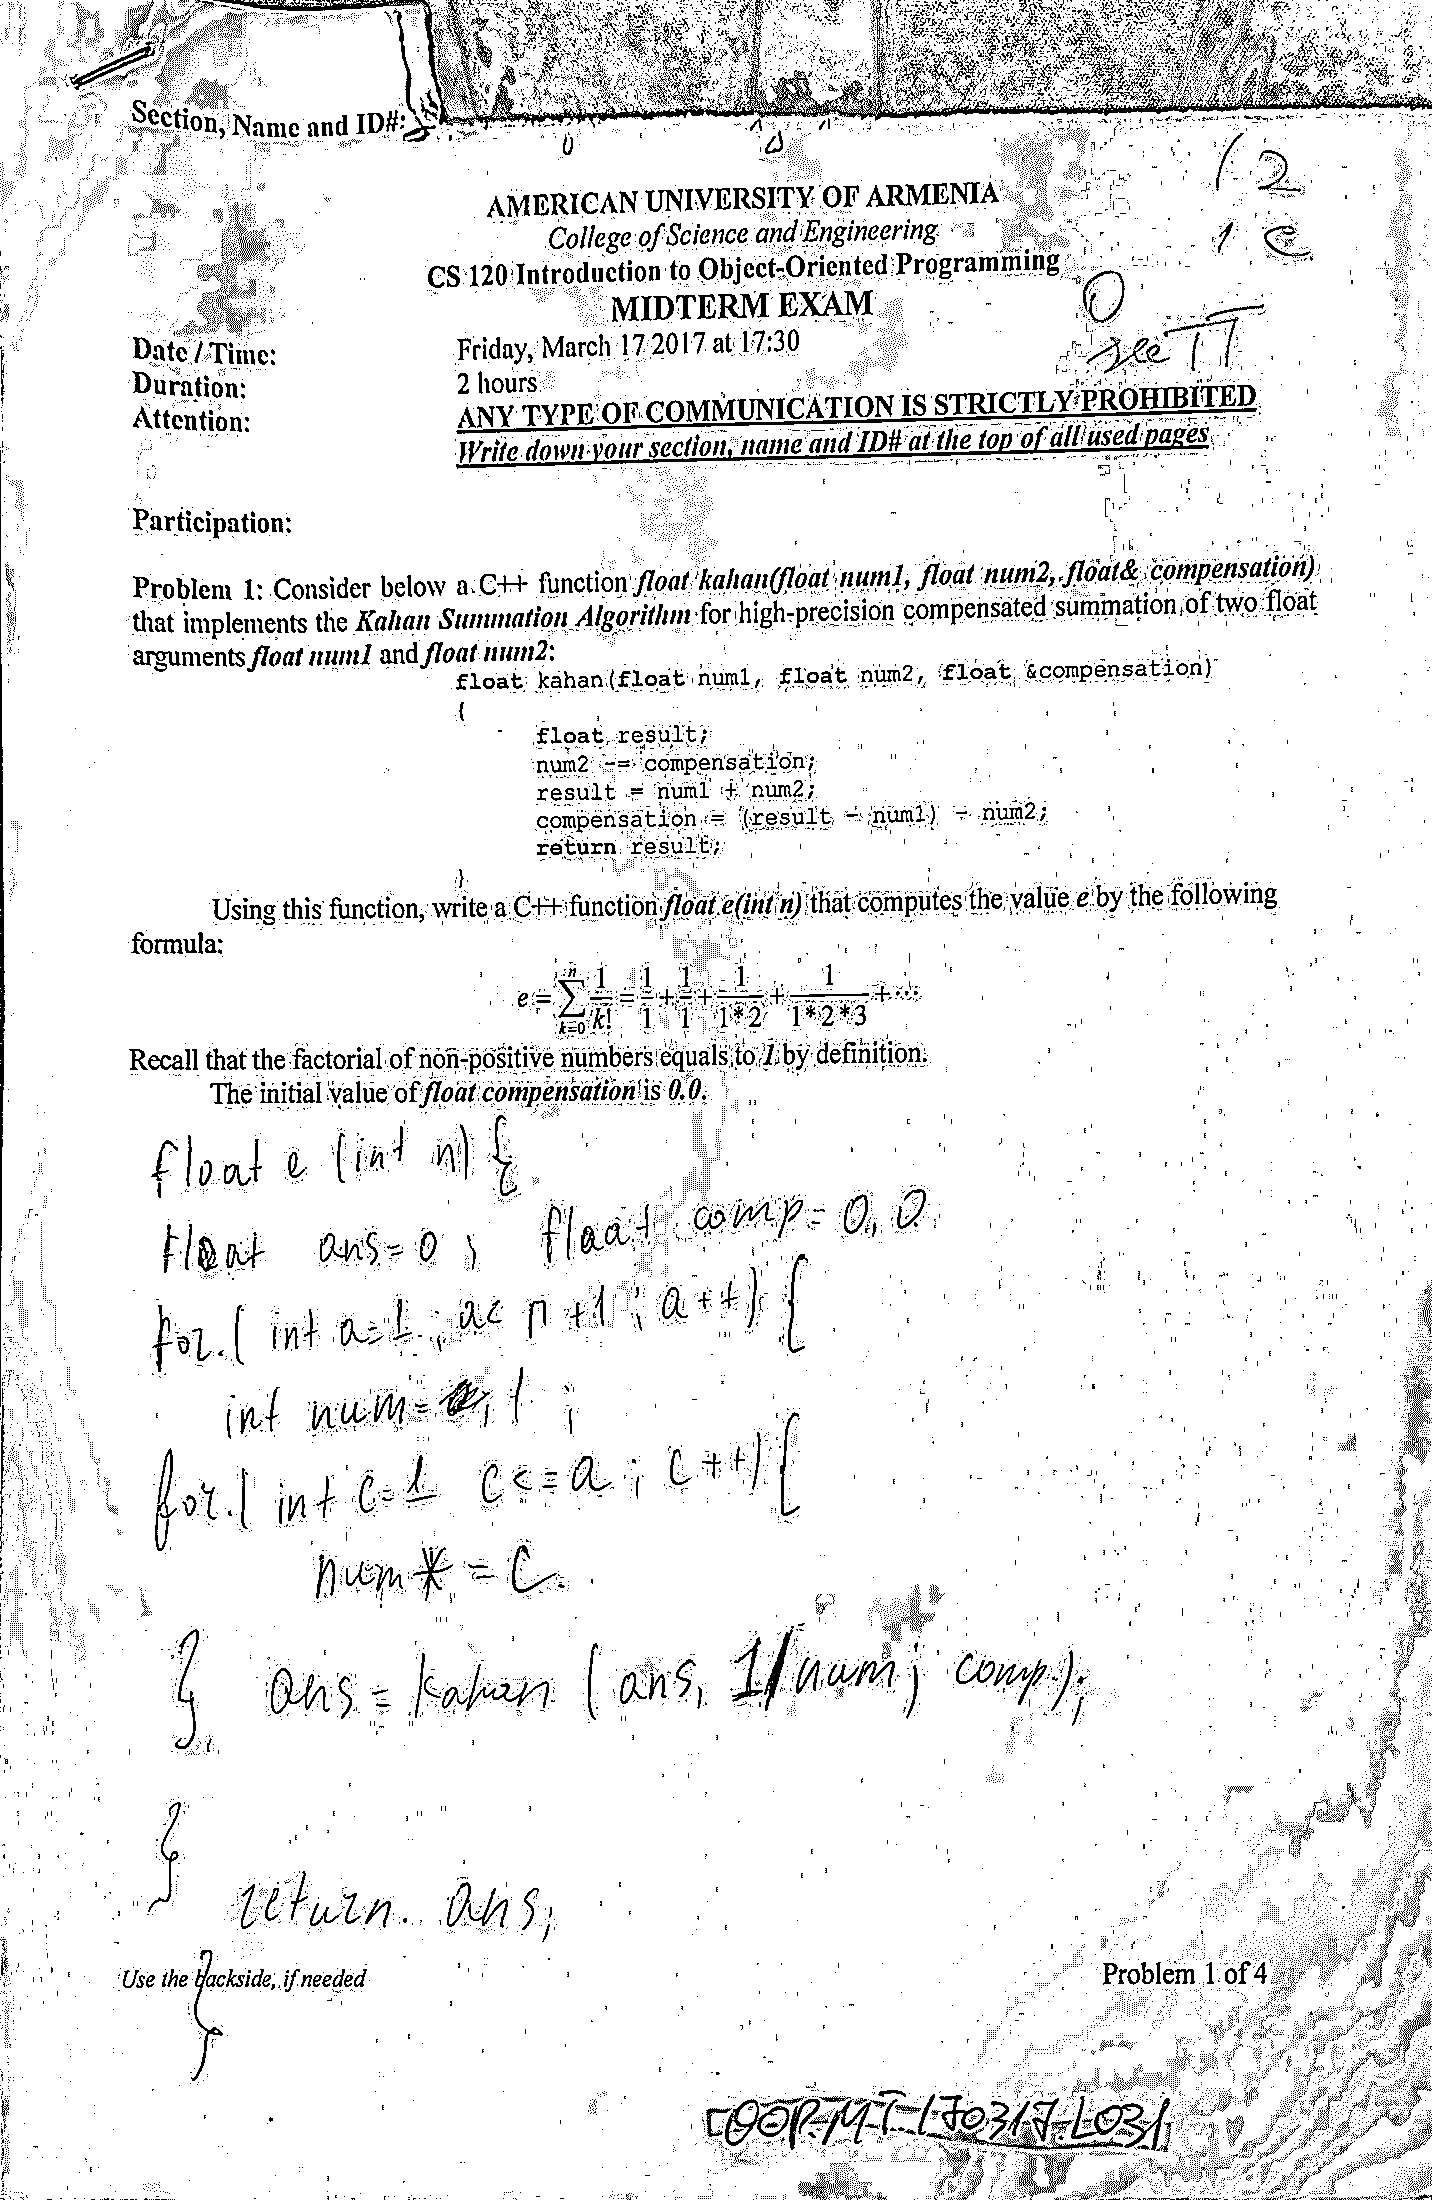 Section, Name and ID#:
AMERICAN UNIVERSITY OF ARMENIA
College of Science and Engineering
CS 120 Introduction to Object-Oriented Programming
MIDTERM EXAM
Date / Time: Friday, March 17 2017 at 17:30
Duration: 2 hours
Attention: ANY TYPE OF COMMUNICATION IS STRICTLY PROHIBITED
Write down your section, name and ID# at the top of all used pages
12
0
see TT
Participation:
Problem 1: Consider below a C++ function float kahan(float num1, float num2, float& compensation)
that implements the Kahan Summation Algorithm for high-precision compensated summation of two float
arguments float num1 and float num2:
float kahan(float num1, float num2, float &compensation)
{
float result;
num2 -= compensation;
result = num1 + num2;
compensation = (result - num1) - num2;
return result;
}
Using this function, write a C++ function float e(int n) that computes the value e by the following
formula:
e = ∑ⁿₖ₌₀ 1/k! = 1/1 + 1/1 + 1/1*2 + 1/1*2*3 + ...
Recall that the factorial of non-positive numbers equals to 1 by definition.
The initial value of float compensation is 0.0.
float e (int n) {
float ans = 0 ; float comp = 0,0
for ( int a = 1 ; a < n + 1 ; a++) {
int num = 1 ;
for ( int c = 1 c <= a ; c++) {
num * = c
} ans = kahan ( ans, 1/num ; comp );
}
return ans;
}
Use the backside, if needed
Problem 1 of 4
OOP-MT-170317-L031